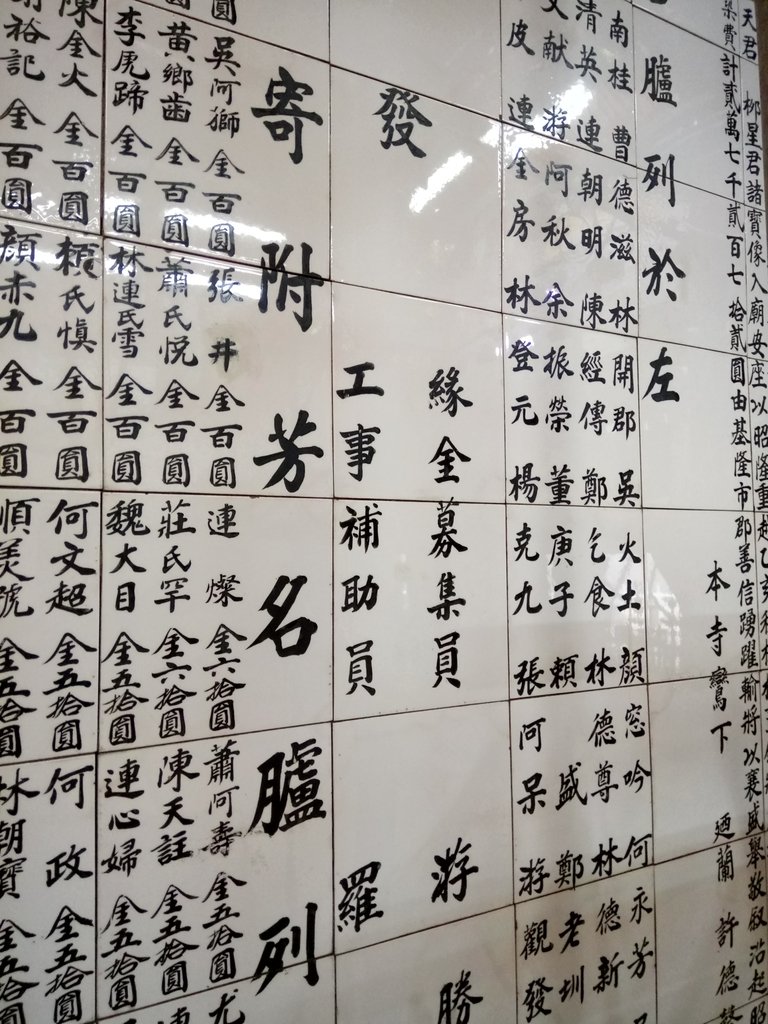 天君 柳星君諸寶像入廟安座以昭隆重
染費計貳萬七千貳百七拾貳圓由基隆市郡善信踴躍輸將以襄盛舉敬叙沿起昭
本寺鸞下 廼蘭 許德
臚列於左
南桂 曹德滋 林開郡 吳火土 顏窓吟 何永芳
清英 連朝明 陳經傳 鄭乞食 林德尊 林德新
文献 游阿秋 余振榮 董庚子 賴盛 鄭老圳
皮 連金房 林登元 楊克九 張阿呆 游觀發
發緣金募集員 游勝
工事補助員 羅
寄附芳名臚列
吳阿獅 金百圓 張井 金百圓 連燦 金六拾圓 蕭阿壽 金五拾圓 尤
黃鄉齒 金百圓 蕭氏悅 金百圓 莊氏罕 金六拾圓 陳天註 金五拾圓 連
李虎蹄 金百圓 林連氏雪 金百圓 魏大目 金五拾圓 連心婦 金五拾圓
陳金火 金百圓 賴氏慎 金百圓 何文超 金五拾圓 何政 金五拾圓
裕記 金百圓 顏赤九 金百圓 順美號 金五拾圓 林朝寶 金五拾圓